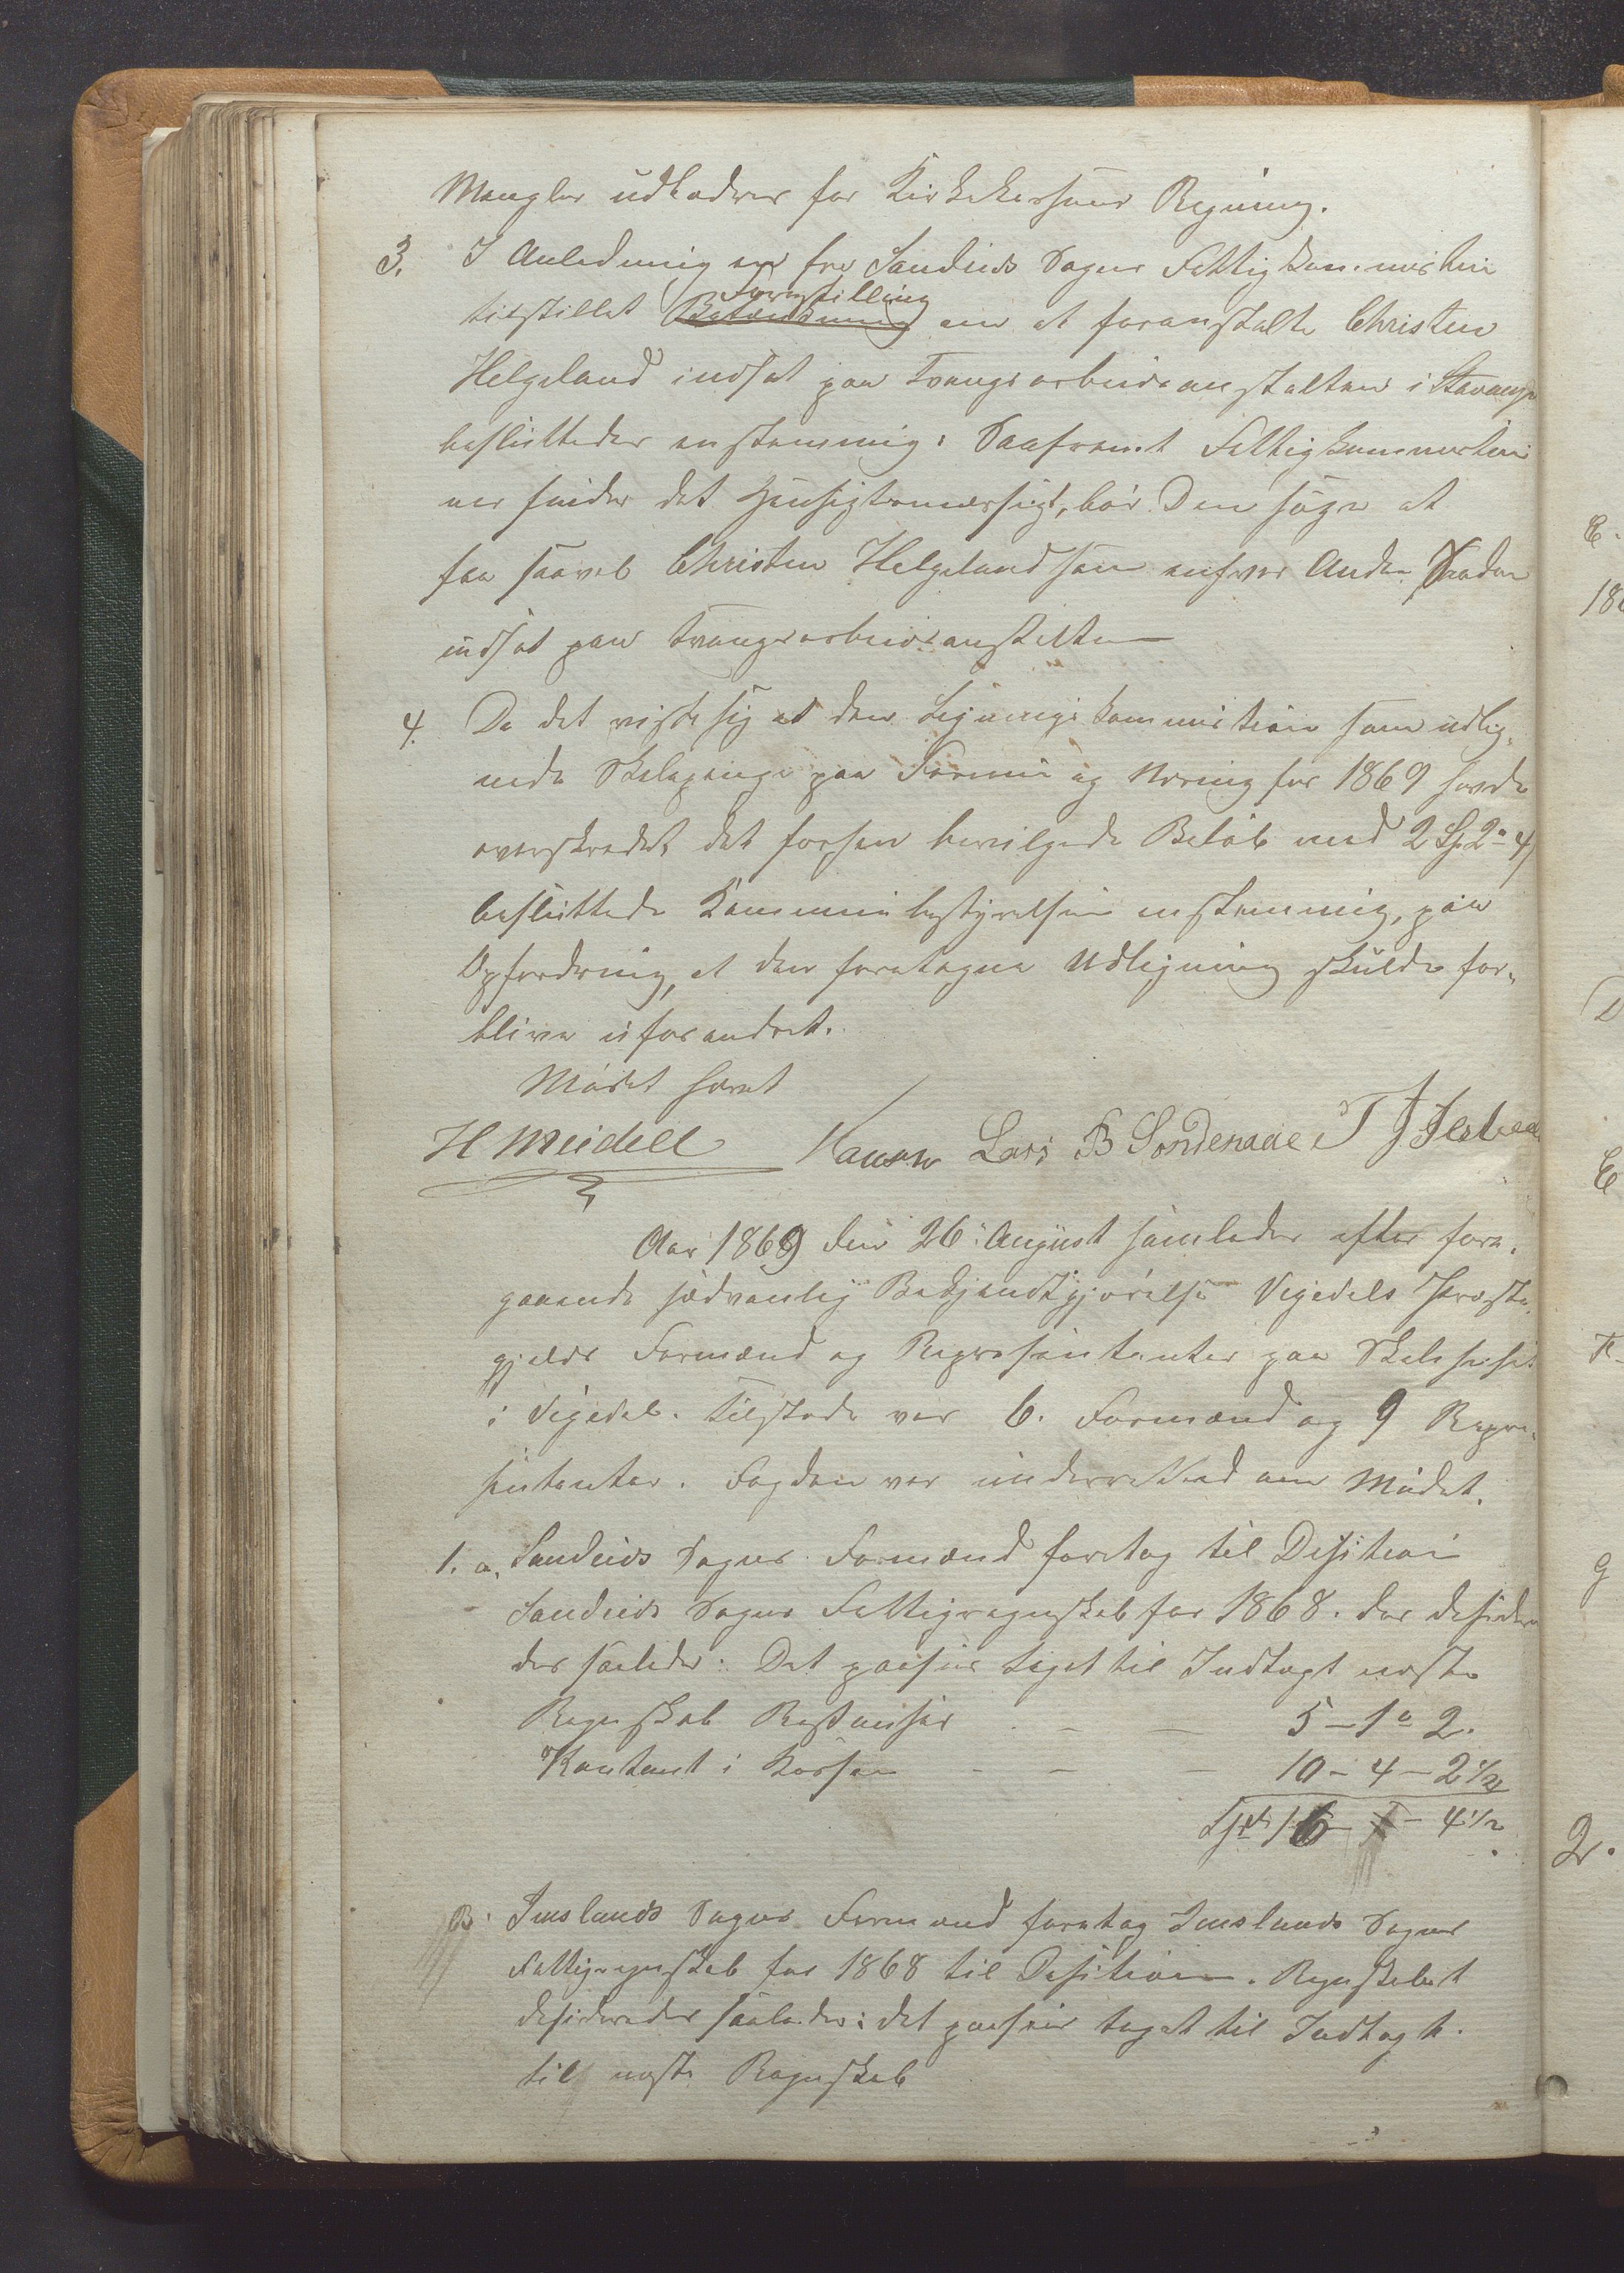 Mangler udbedres for Kirkekassens Regning.
3. I Anledning en fra Sandeids Sogns Fattigkommission
Forestilling
tilstillet Betænkning om at foranstalte Christen
Helgeland indsat paa Tvangsarbeidsanstalten i Stavanger
besluttedes enstemmig: Saafremt Fattigkommission
en finder det Hensigtsmæssigt, bør Den søge at
faa saavel Christen Helgeland som enhver Anden Saadan
indsat paa Tvangsarbeidsanstalten
4. Da det viste sig at den Ligningskommission som udlig¬
nede Skolepenge paa Formue og Næring for 1869 havde
overskredet det forhen bevilgede Beløb med 2 Sp 2 " 4
besluttede Kommunebestyrelsen enstemmig, paa
Opfordring, at den foretagne Udligning skulde for¬
blive uforandret.
Mødet hævet
H Meidell Lars B Søndenaae T J
Aar 1869 den 26: August samledes efter fore¬
gaaende sædvanlig Bekjendtgjørelse Vigedals Præste¬
gjelds Formænd og Repræsentanter paa Skolehuset
i Vigedal. Tilstede var 6. Formænd og 9 Repræ¬
sentanter. Fogden var underrettet om Mødet.
1. a. Sandeids Sogns Formænd foretog til Desision
Sandeids Sogns Fattigregnskab for 1868. der desidere
des saaledes: Det passerer taget til Indtægt næste
Regnskab Restanser . - - 5 - 1 " 2.
Kontant i Kassen - - - 10 - 4 - 2 1/2
Spd 16 - - 4 1/2
B. Imslands Sogns Formænd foretog Imslands Sogns
Fattigregnskab for 1868 til Desision. Regnskabet
desideredes saaledes: det passerer taget til Indtægt.
til næste Regnskab